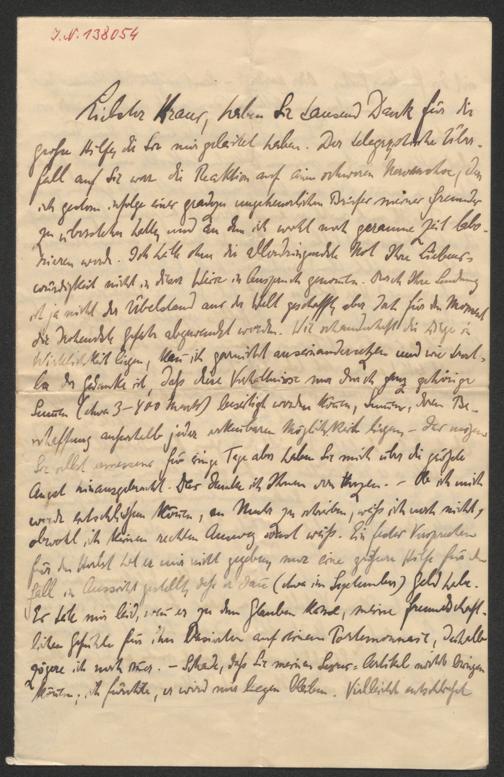 I.N. 138054
Liebster Kraus, haben Sie tausend Dank für die
große Hilfe, die Sie mir geleistet haben. Der telegraphische Über-
fall auf Sie war die Reaktion auf einen schweren Nervenchoc, den
ich gestern infolge einer geradezu ungeheuerlichen Briefes meiner Freundin
zu überstehen hatte und an dem ich wohl noch geraume Zeit labo-
rieren werde. Ich hätte ohne die allerdringendste Not Ihre Liebens-
würdigkeit nicht in dieser Weise in Anspruch genommen. Durch Ihre Sendung
ist ja nicht der Übelstand aus der Welt geschafft, aber doch für den Moment
die drohendste Gefahr abgewendet worden. Wie schauderhaft die Dinge in
Wirklichkeit liegen, kann ich garnicht auseinandersetzen und wie
der Gedanke ist, daß diese Verhältnisse nur durch ganz gehörige
Summen (etwa 3–400 Mark) beseitigt werden können, Summen, deren Be-
schaffung außerhalb jeder erkennbaren Möglichkeit liegen – der
Sie selbst für einige Tage aber haben Sie mich über die größte
Angst hinausgebracht. Das danke ich Ihnen von Herzen. – Ob ich mich
werde entschließen können, an zu schreiben, weiß ich noch nicht,
obwohl ich keinen rechten Ausweg sonst weiß. Ein fester Versprechen
für den Herbst hat er mir nicht gegeben, nur eine größere Hilfe für den
Fall in Aussicht gestellt, daß er dann (etwa im September) Geld habe.
Er täte mir leid, wenn er zu dem Glauben käme, meine freundschaft-
lichen Gefühle für ihn basierten auf seinem Portemonnaie, deshalb
zögere ich noch etwas. – Schade, daß Sie meinen Artikel nicht bringen
können; ich fürchte, er wird nun liegen bleiben. Vielleicht entschließt